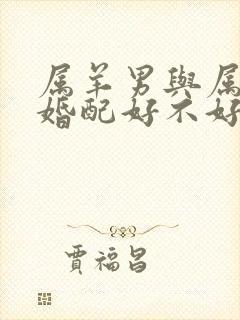 属羊男與属
婚配好不好
賈福昌